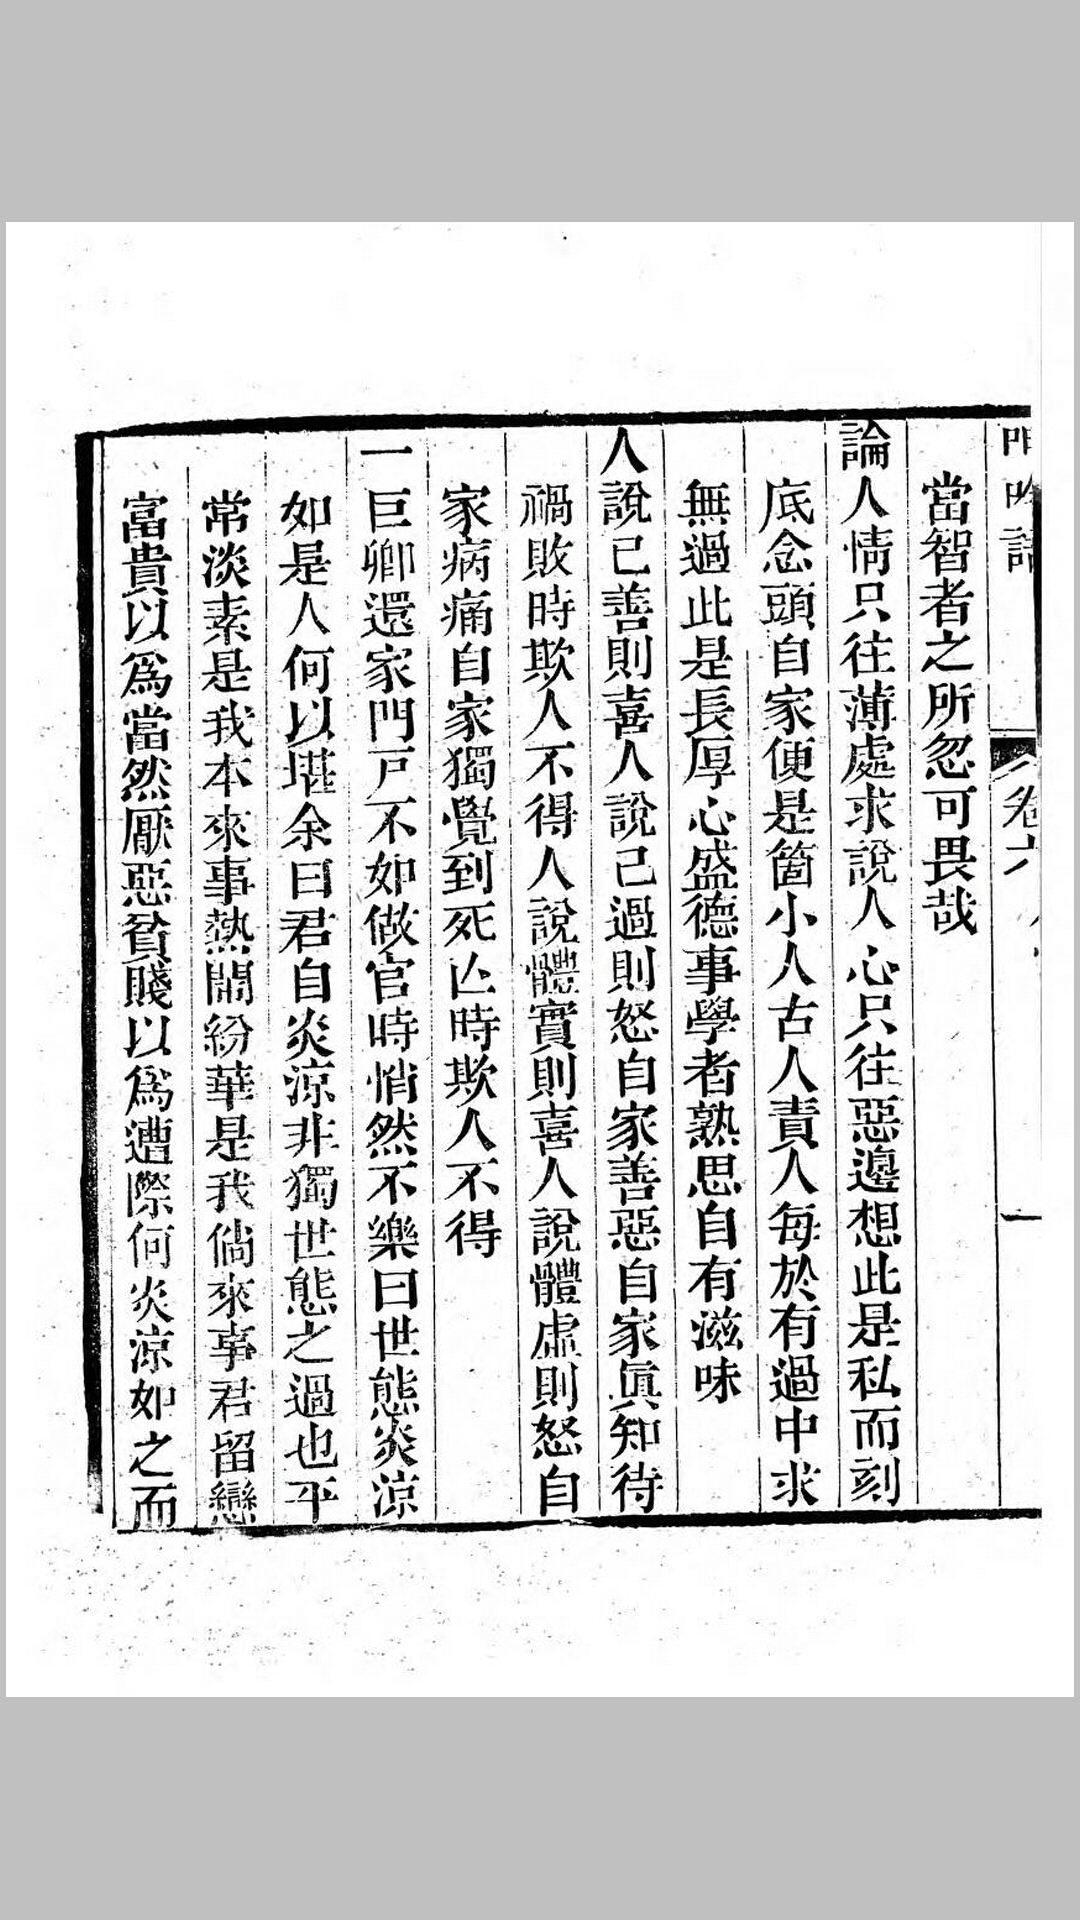 呻吟語 卷六 一
當智者之所忽可畏哉
論人情只往薄處求說人心只往惡邊想此是私而刻
底念頭自家便是箇小人古人責人每於有過中求
無過此是長厚心盛德事學者熟思自有滋味
人說己善則喜人說己過則怒自家善惡自家眞知待
禍敗時欺人不得人說體實則喜人說體虛則怒自
家病痛自家獨覺到死亾時欺人不得
一巨卿還家門戸不如做官時悄然不樂曰世態炎涼
如是人何以堪余曰君自炎涼非獨世態之過也平
常淡素是我本來事熱鬧紛華是我倘來事君留戀
富貴以爲當然厭惡貧賤以爲遭際何炎涼如之而